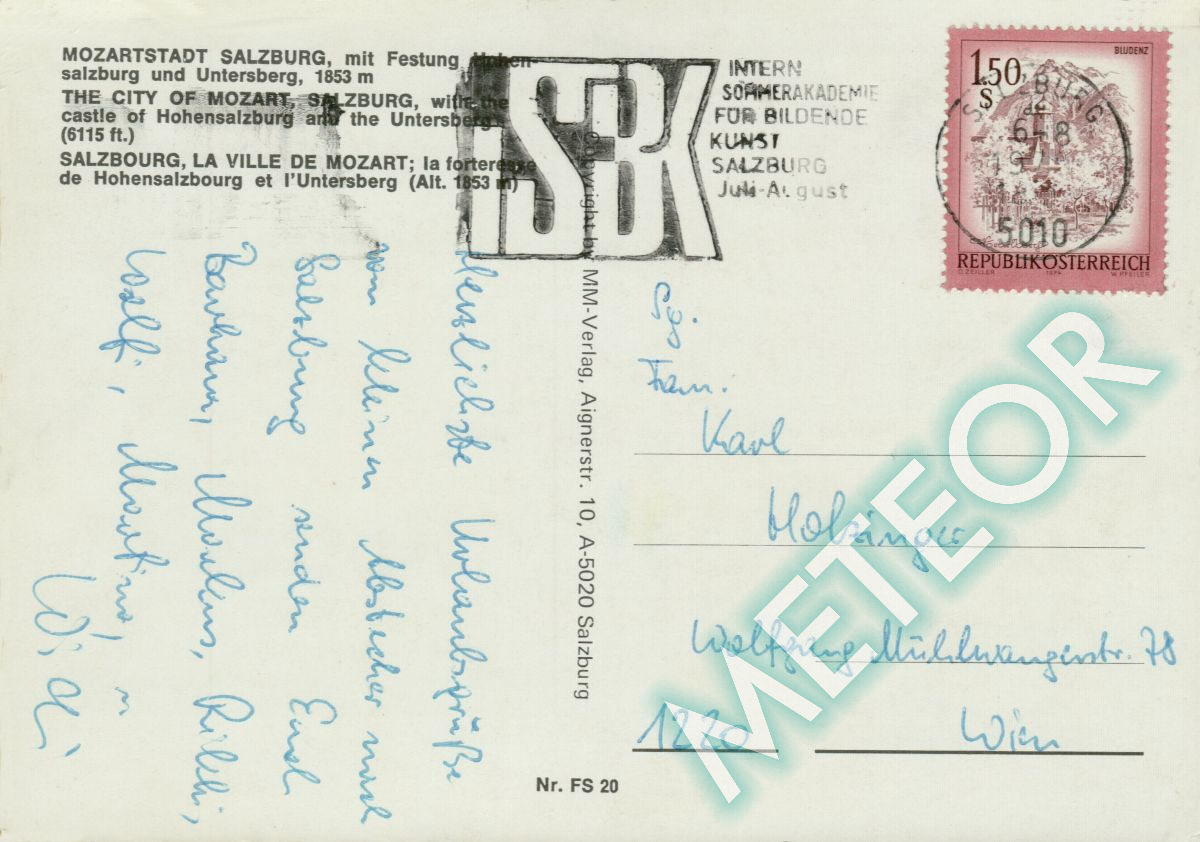 MOZARTSTADT SALZBURG, mit Festung Hohen-
salzburg und Untersberg, 1853 m
THE CITY OF MOZART, SALZBURG, with the
castle of Hohensalzburg and the Untersberg
(6115 ft.)
SALZBOURG, LA VILLE DE MOZART; la forteresse
de Hohensalzbourg et l'Untersberg (Alt. 1853 m)
ISBK
INTERN
SOMMERAKADEMIE
FÜR BILDENDE
KUNST
SALZBURG
Juli-August
BLUDENZ
1.50
S
SALZBURG
5010
REPUBLIK ÖSTERREICH
Herzlichste Urlaubsgrüße
vom kleinen Abstecher nach
Salzburg senden Euch
Barbara, Markus,
Wolfi, Martina,
Copyright by MM-Verlag, Aignerstr. 10, A-5020 Salzburg
Fam.
Karl
Holzinger
Wolfgang Mühlwangerstr. 78
1220 Wien
Nr. FS 20
METEOR